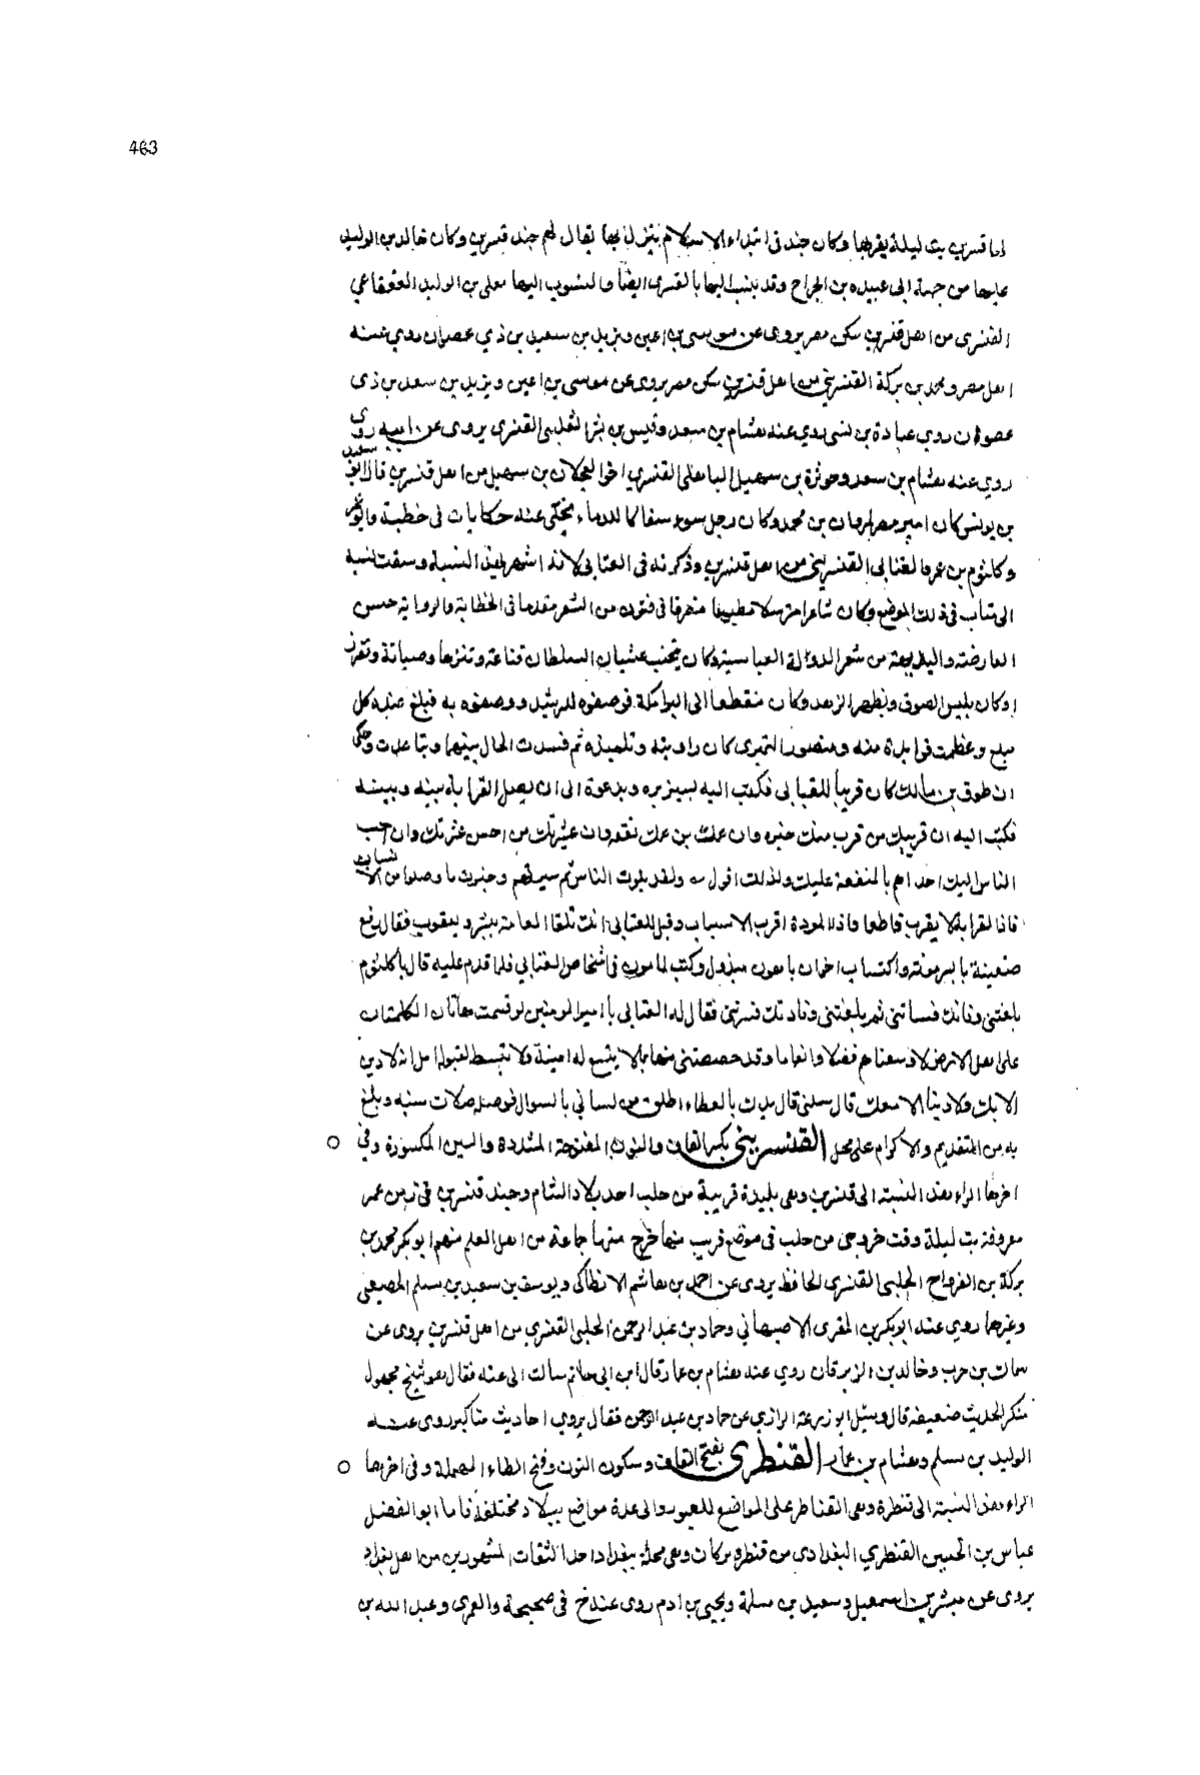 463
اما قنسرين بت ليلة بقربها وكان جند فى ابتداء الاسلام ينزل بها يقال لهم جند قنسرين وكان خالد بن الوليد
عليها من جهة ابى عبيده بن الجراح وقد ينسب اليها بالقنسرى ايضا والمنسوب اليها معلى بن الوليد القعقاعي
القنسرى من اهل قنسرين سكن مصر يروى عن موسى بن اعين ويزيد بن سعيد بن ذي عصوان روي عنه
اهل مصر ومحمد بن بركة القنسريني من اهل قنسرين سكن مصر يروى عن موسى بن اعين ويزيد بن سعد بن ذى
عصوان روي عبادة بن نسى روي عنه هشام بن سعد وقيس بن بشر التغلبى القنسرى يروى عن ابيه روى
روي عنه هشام بن سعد وحوثرة بن سهيل الباهلى القنسري اخو العجلان بن سهيل من اهل قنسرين قال ابو سعيد
بن يونس كان امير مصر لمروان بن محمد وكان رجل سوء سفاكا للدماء يحكى عنه حكايات فى خطبه
وكلثوم بن عمرو العتابى القنسرينى من اهل قنسرين وذكرته فى العتابى لانه اشهر بهذه النسبة وسقت نسبه
الى عتاب فى ذلك الموضع وكان شاعرا مترسلا مطبوعا متصرفا فى فنون من الشعر مقدما فى الخطابة والرواية حسن
العارضة والبديهة من شعراء الدولة العباسية وكان يتجنب غشيان السلطان قناعة وتنزها وصيانة وتقززا
وكان يلبس الصوف ويظهر الزهد وكان منقطعا الى البرامكة فوصفوه للرشيد ووصفوه به فبلغ عنده كل
مبلغ وعظمت فوايده منه ومنصور النميرى كان راويته وتلميذه ثم فسدت الحال بينهما وتباعدت وحكى
ان طوق بن مالك كان قريبا للعتابى فكتب اليه يستزيره ويدعوه الى ان يصل القرابة بينه وبينه
فكتب اليه ان قريبك من قرب منك خيره وان عمك من عمك نفعه وان عشيرتك من احسن عشرتك وان احب
الناس اليك اجداهم بالمنفعة عليك ولذلك اقول ولقد بلوت الناس ثم سبرتهم وخبرت ما وصلوا من الاسباب
فاذا القرابة لا يقرب قاطعا واذا المودة اقرب الاسباب وقيل للعتابى انك تلقا العامة ببشر وتقريب فقال رفع
ضغينة بايسر مؤنة واكتساب اخوان باهون مبذول وكتب المامون فى اشخاص العتابي فلما قدم عليه قال يا كلثوم
بلغتنى وفاتك فساءتنى ثم بلغتنى وفادتك فسرتنى فقال له العتابى يا امير المومنين لو قسمت هاتان الكلمتان
على اهل الارض لاوسعتاهم فضلا وانعاما وقد خصصتنى منهما بما لا يتسع له امنية ولا تنبسط لقبوله امل انه لا دين
الا بك ولا دنيا الا معك قال سلنى قال يدك بالعطاء اطلق من لسانى بالسوال فوصله صلات سنيه وبلغ
به من التقديم والاكرام على محل القنسرينى بكسر القاف والنون المفتوحة المشددة والسين المكسورة وفى
اخرها الراء هذه النسبة الى قنسرين وهى بليدة قريبة من حلب احد بلاد الشام وجند قنسرين فى زمن عمر
معروفة بت ليلة وقت خروجى من حلب فى موضع قريب منها خرج منها جماعة من اهل العلم منهم ابو بكر محمد بن
بركة بن الفرداج الحلبى القنسرى الحافظ يروى عن احمد بن هاشم الانطاكى ويوسف بن سعيد بن مسلم المصيصى
وغيرهما روي عنه ابو بكر بن المقرى الاصبهاني وحماد بن عبد الرحمن الحلبى القنسري من اهل قنسرين يروى عن
سماك بن حرب وخالد بن الزبرقان روي عنه هشام بن عمار قال ابن ابى حاتم سالت ابى عنه فقال هو شيخ مجهول
منكر الحديث ضعيفه قال وسئل ابو زرعة الرازي عن حماد بن عبد الرحمن فقال يروي احاديث مناكير روى عنه
الوليد بن مسلم وهشام بن عمار القنطرى بفتح القاف وسكون النون وفتح الطاء المهملة وفى اخرها
الراء هذه النسبة الى قنطرة وهى القناطر على المواضع للعبور والى عدة مواضع ببلاد مختلفة فاما ابو الفضل
عباس بن الحسين القنطري البغدادى من قنطرة بركان وهى محلة ببغداد احد الثقات المشهورين من اهل بغداد
يروى عن مبشر بن اسمعيل وسعيد بن مسلمة ويحيى بن ادم روى عنه خ فى صحيحة والعمرى وعبد الله بن